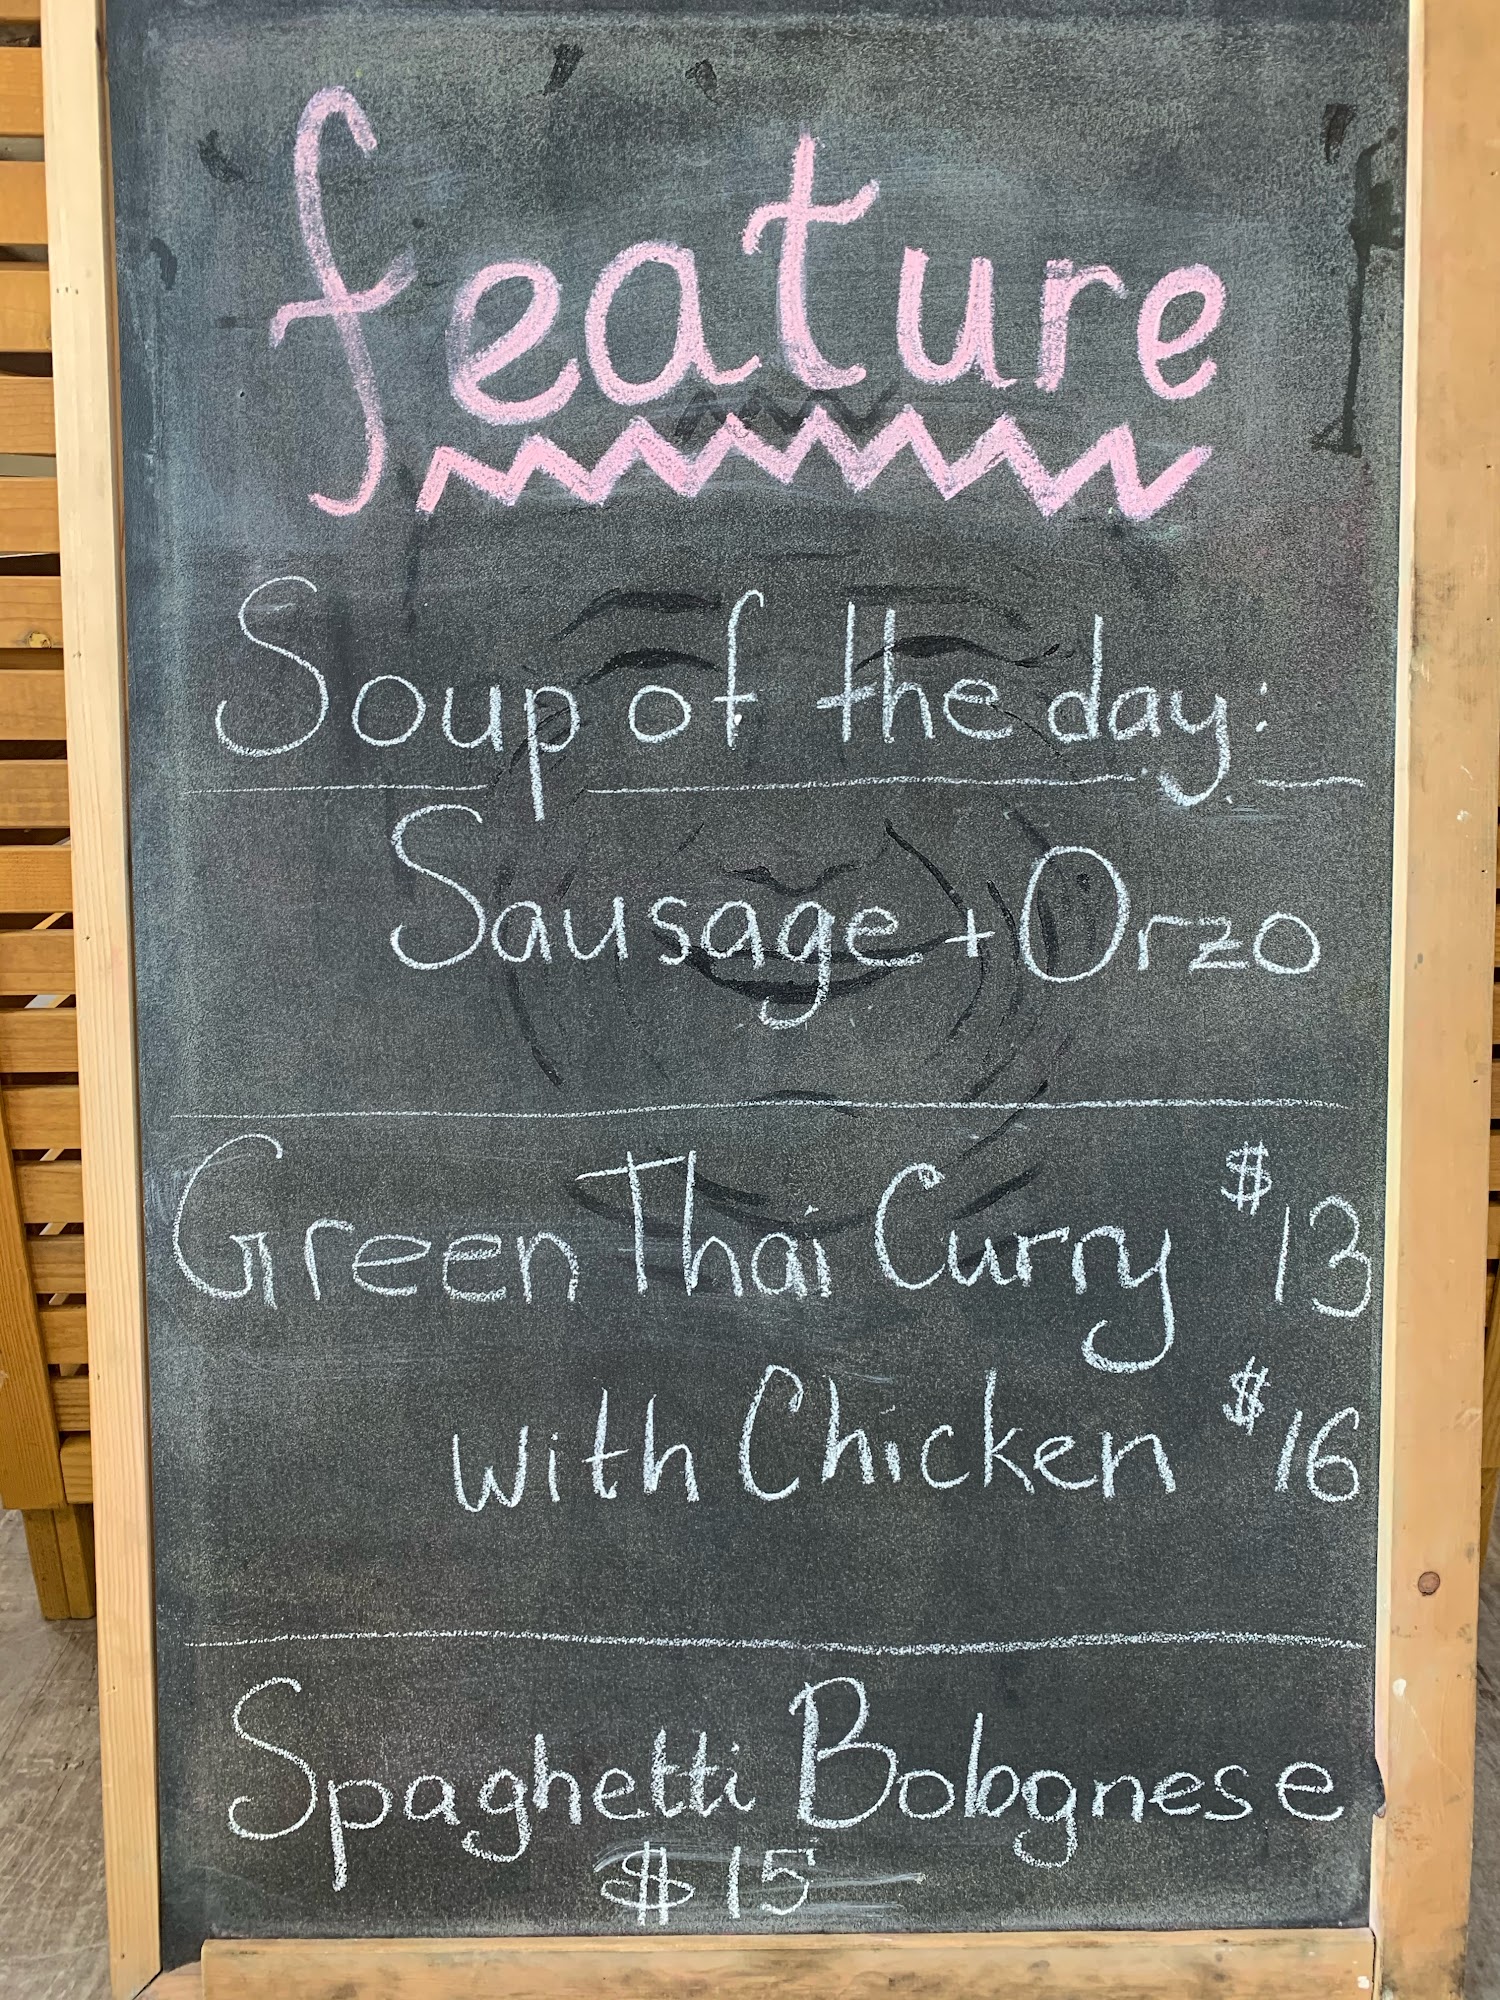 feature
Soup of the day:
Sausage + Orzo
Green Thai Curry $13
with Chicken $16
Spaghetti Bolognese
$15